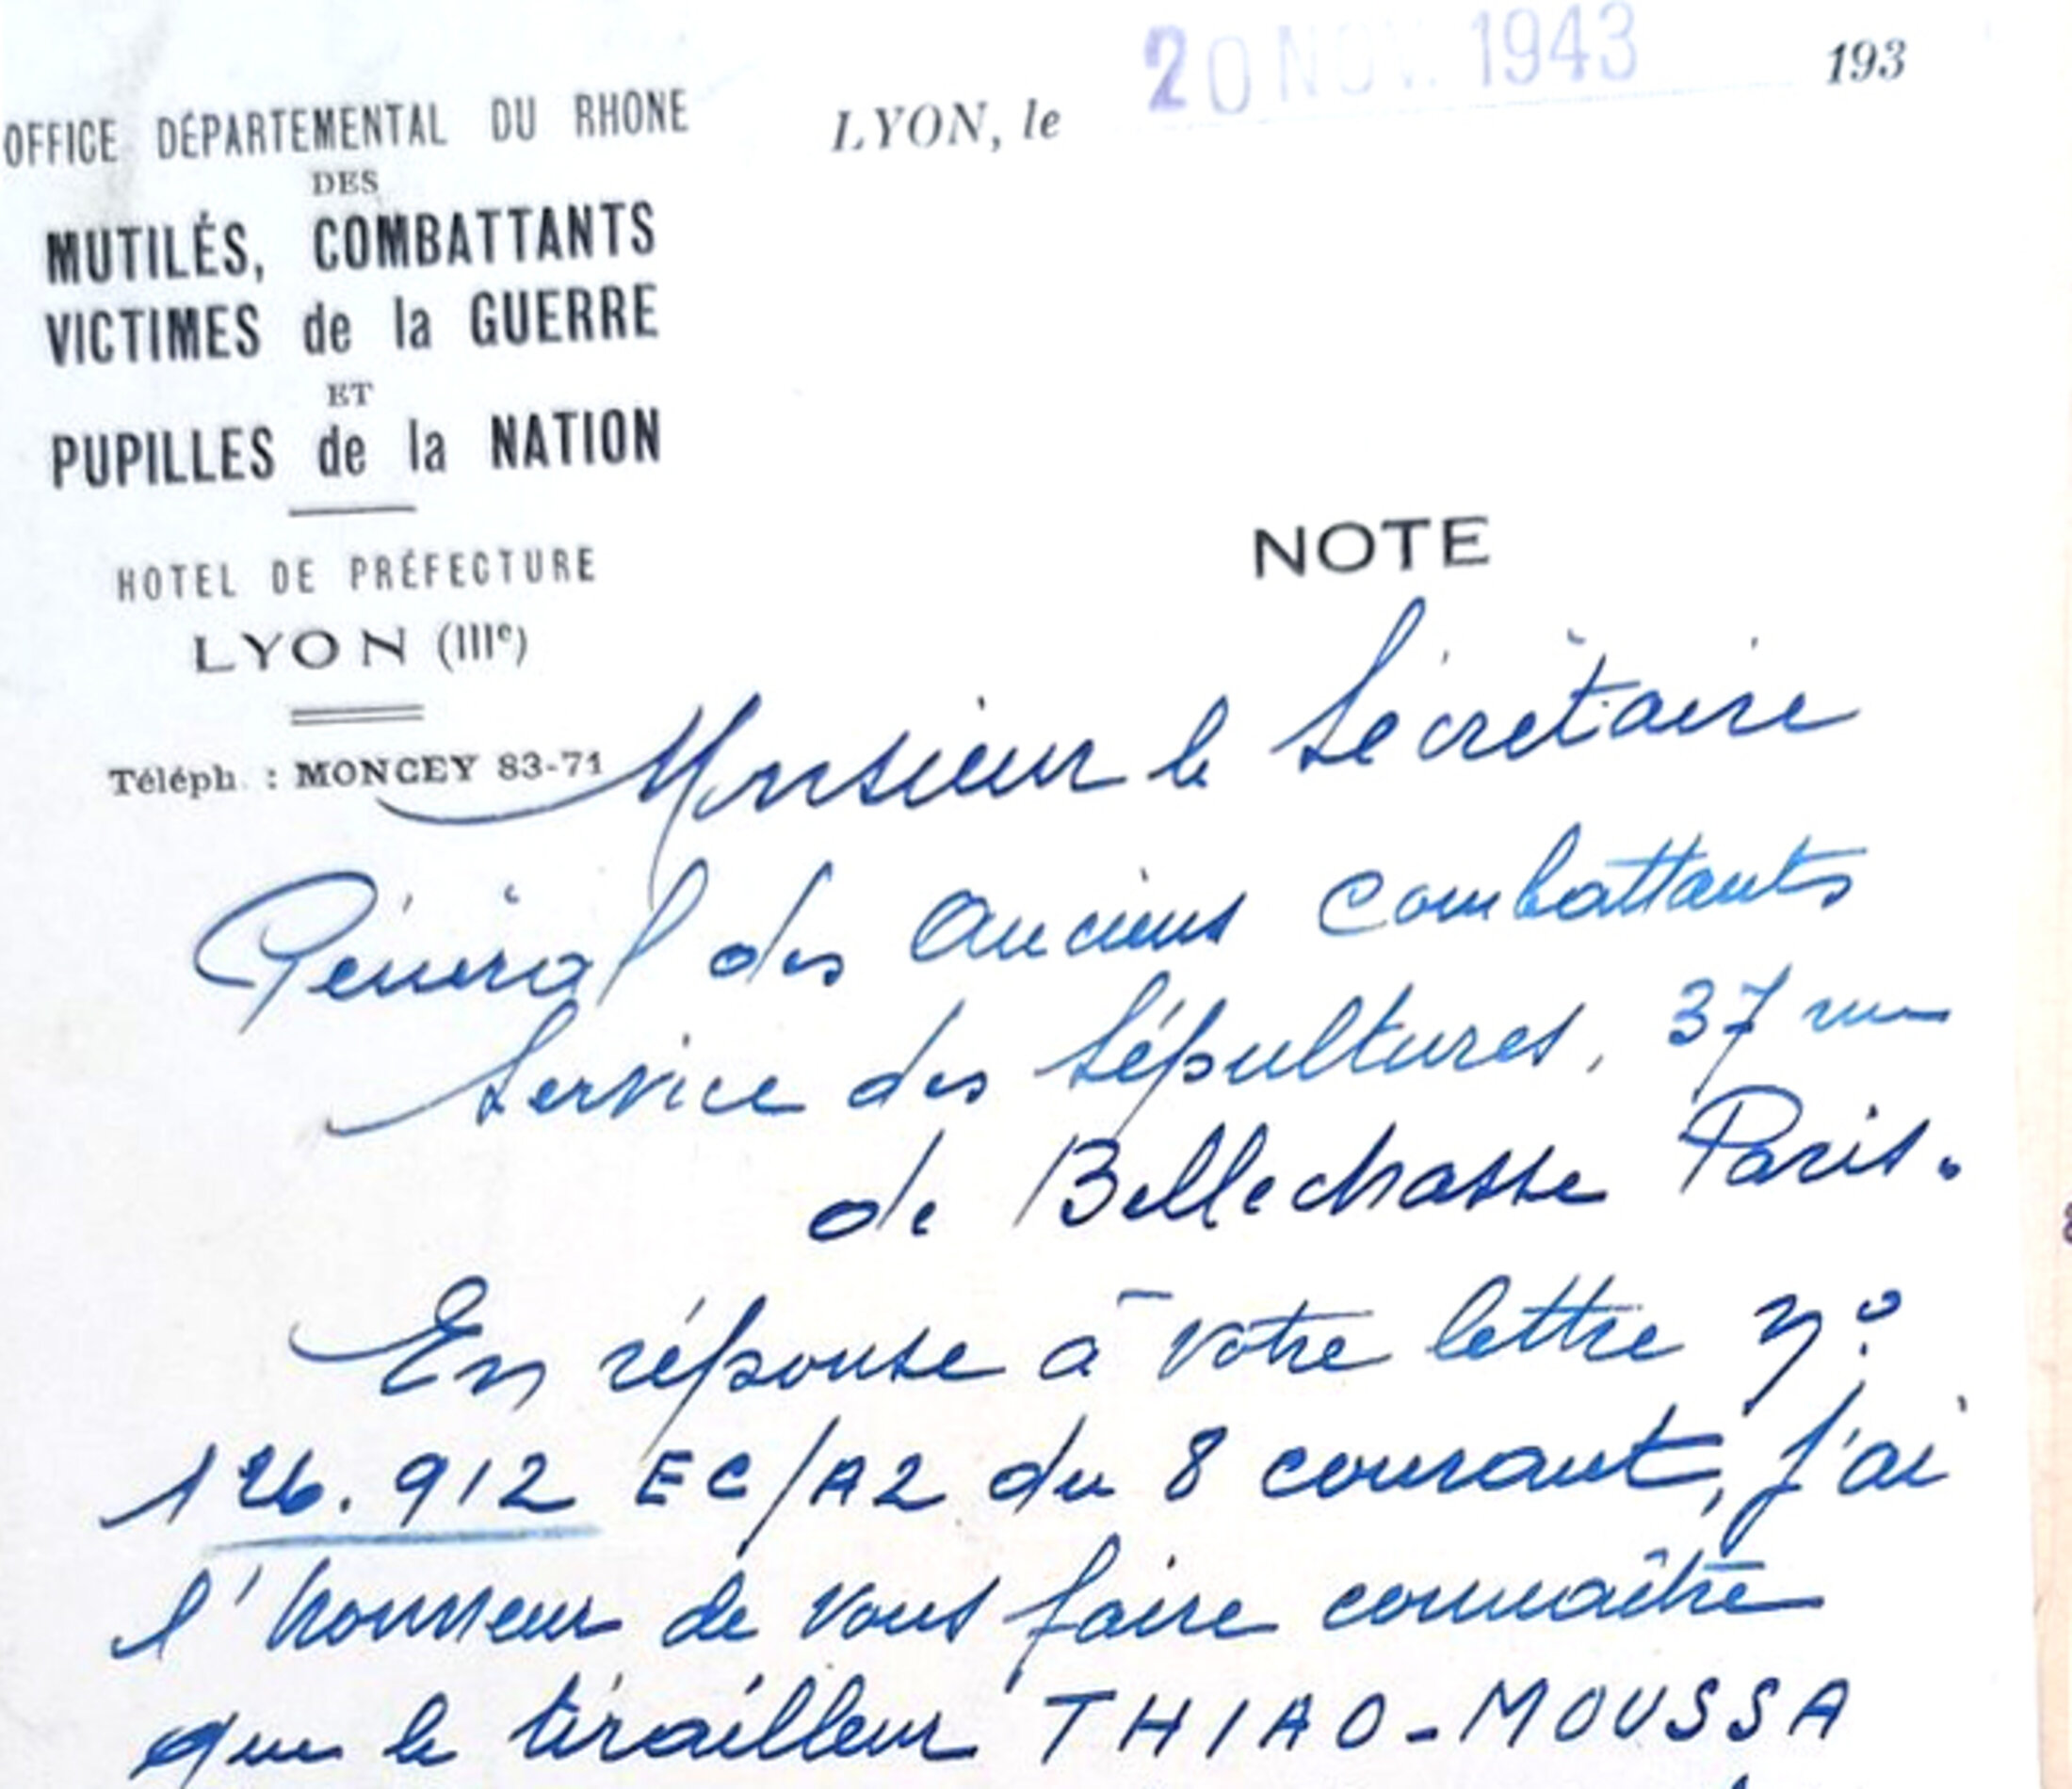 20 NOV. 1943
LYON, le 193
OFFICE DÉPARTEMENTAL DU RHONE
DES
MUTILÉS, COMBATTANTS
VICTIMES de la GUERRE
ET
PUPILLES de la NATION
HOTEL DE PRÉFECTURE
LYON (IIIe)
Téléph. : MONCEY 83-71
NOTE
Monsieur le Secrétaire
Général des Anciens Combattants
Service des Sépultures, 37 rue
de Bellechasse Paris.
En réponse à votre lettre n°
126.912 EC/A2 du 8 courant, j'ai
l'honneur de vous faire connaître
que le tirailleur THIAO-MOUSSA